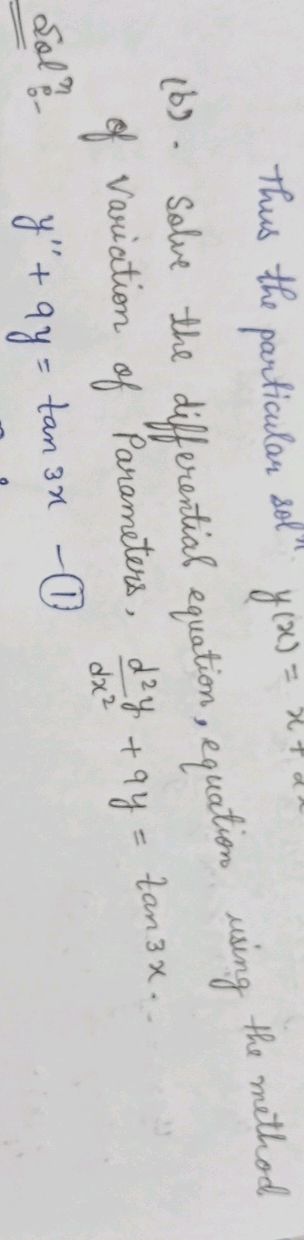 Thus the particular solⁿ. y(x) = x +
(b). Solve the differential equation, equation using the method
of Variation of Parameters, d²y/dx² + 9y = tan 3x.
Solⁿ:-
y'' + 9y = tan 3x —①